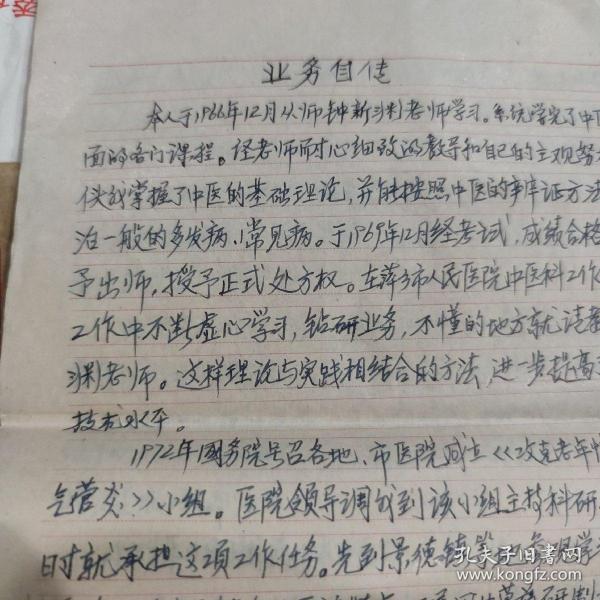 业务自传
本人于1966年12月从师钟新渊老师学习。系统学完了中医
面的各门课程。经老师耐心细致的教导和自己的主观努
使我掌握了中医的基础理论,并能按照中医的辨证方法
治一般的多发病、常见病。于1969年12月经考试,成绩合格
予出师,授予正式处方权。在萍乡市人民医院中医科工作
工作中不断虚心学习,钻研业务,不懂的地方就请教
渊老师。这样理论与实践相结合的方法,进一步提高
技术水平。
1972年国务院号召各地,市医院成立《攻克老年慢
气管炎》小组。医院领导调我到该小组主持科研
时就承担这项工作任务。先到景德镇
孔夫子旧书网
www.kongfz.com